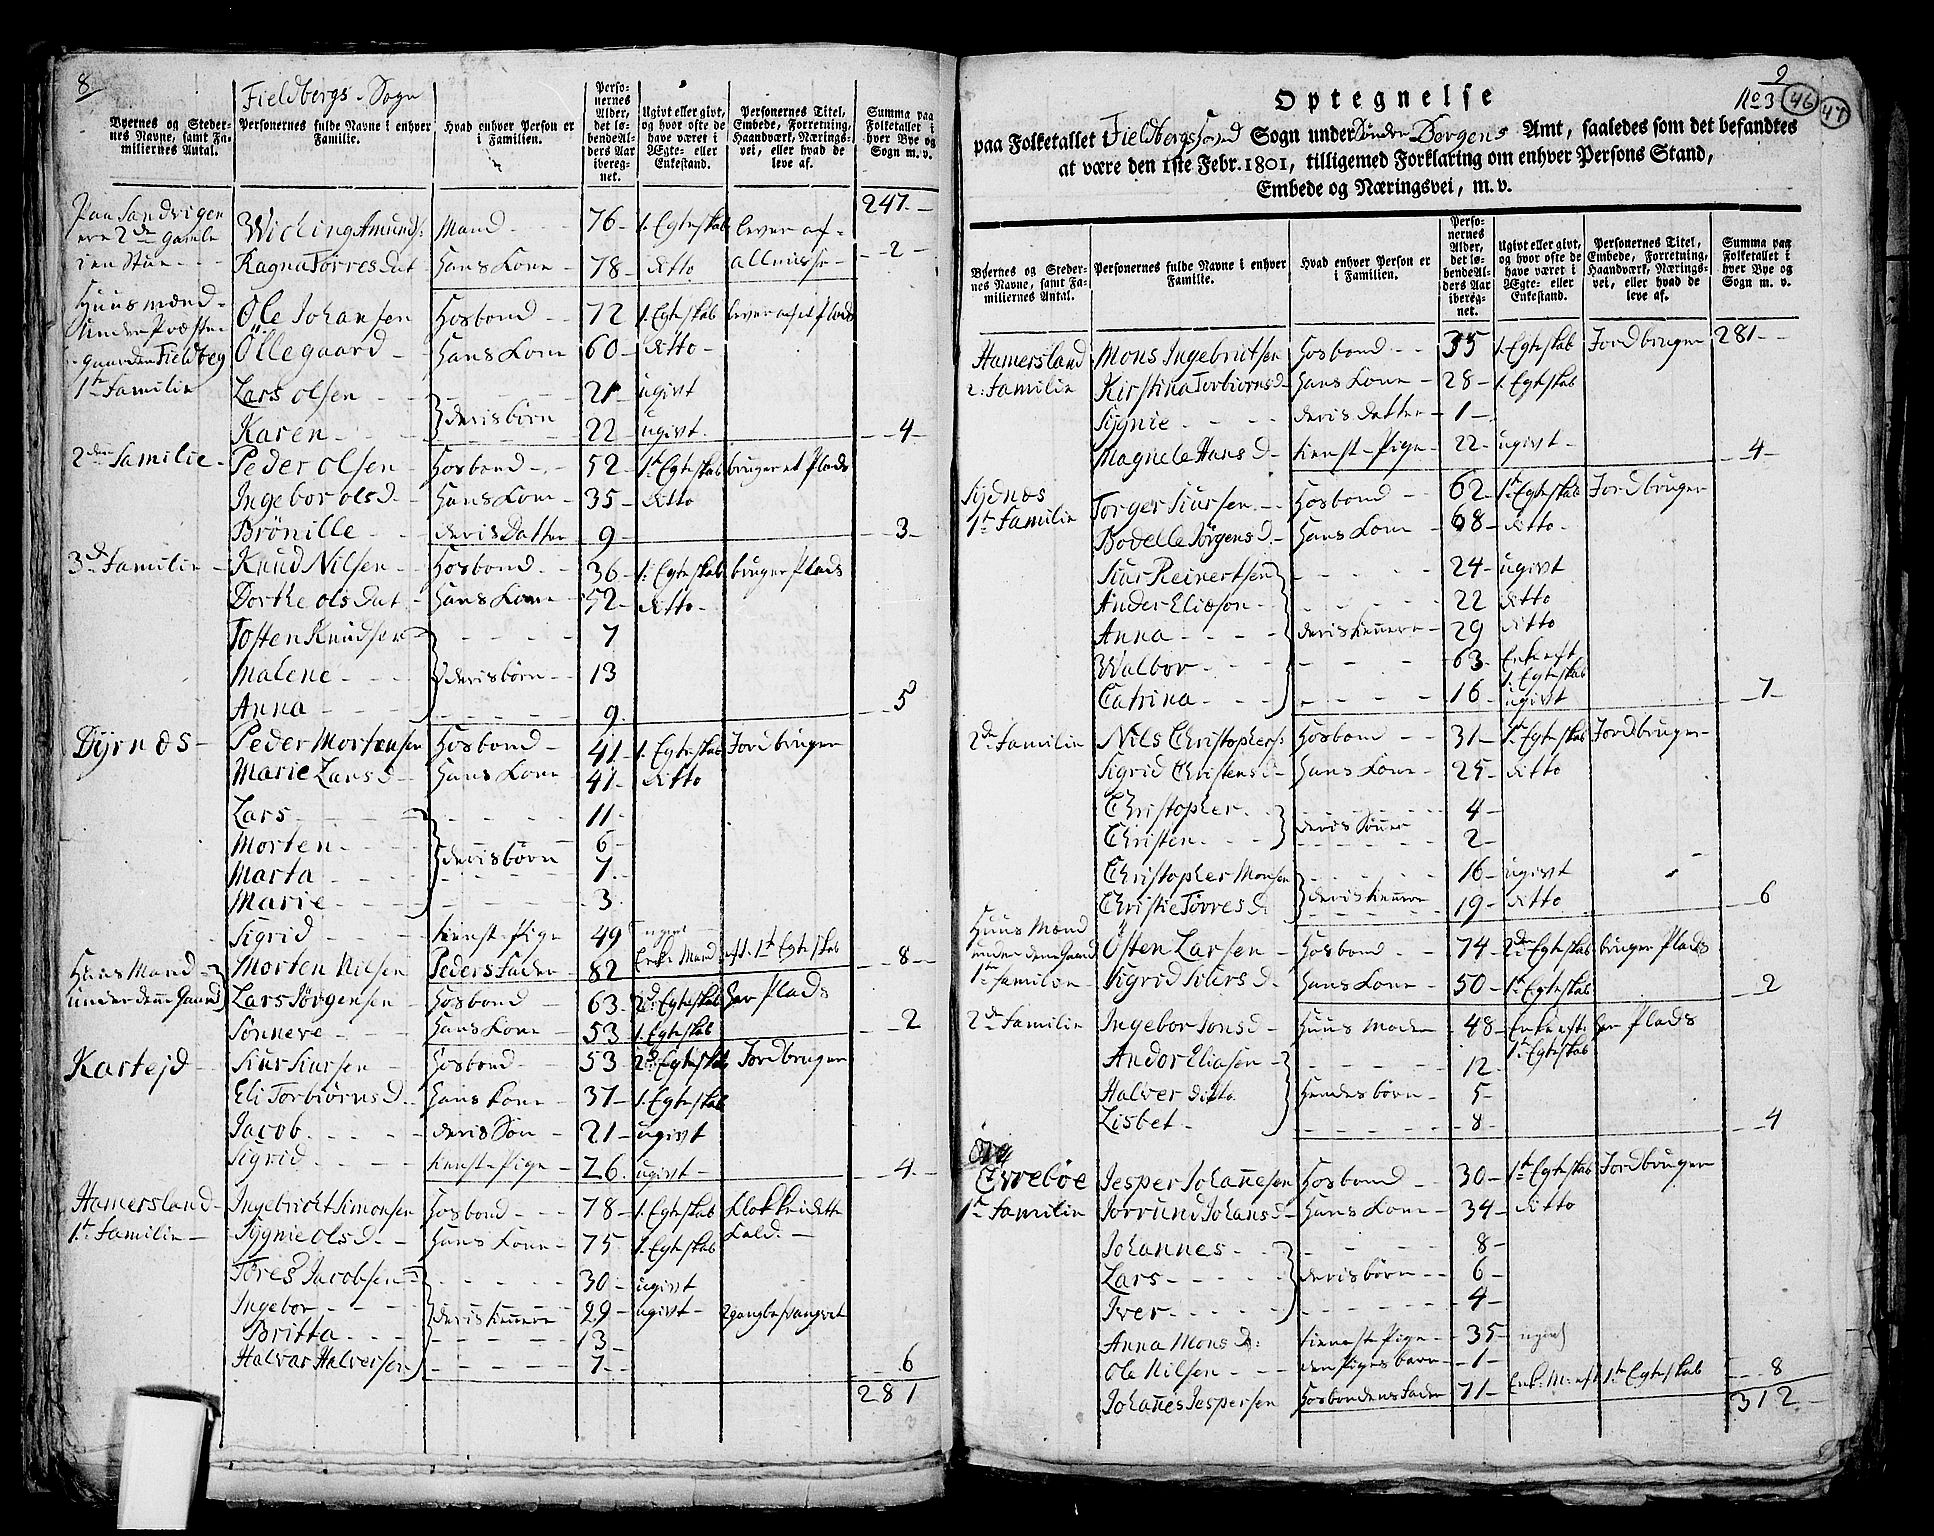 8
Fieldbergs Sogn
Byernes og Steder-
nes Navne, samt Fa-
miliernes Antal.
Personernes fulde Navne i enhver
Familie.
Hvad enhver Person er
i Familien.
Perso-
nernes
Alder,
det lø-
bende Al-
ders Aar
ibereg-
net.
Ugivt eller givt,
og hvor ofte de
have været i
Ægte- eller
Enkestand.
Personernes Titel,
Embede, Forretning,
Haandværk, Nærings-
vei, eller hvad de
leve af.
Summa paa
Folketallet i
hver Bye og
Sogn m. v.
247
Paa Sandvigen
ere 2de gamle
Wiching Amunds: Mand 76 1. Egteskab lever af
i en Stue Ragna Torres Dat Hans Kone 78 ditto 2
Huusmænd
under Præste Ole Johansen Hosbond 72 1. Egteskab lever af sit Plads
gaarden Fieldberg Öllegaard Hans Kone 60 ditto
1te Familie Lars Olsen 21 ugivt
Karen deris børn 22 ugivt 4
2den Familie Peder Olsen Hosbond 52 1te Egteskab bruger et Plads
Ingebor Olsd Hans Kone 35 ditto
Brönille deris Datter 9 3
3de Familie Knud Nilsen Hosbond 36 1. Egteskab bruger Plads
Dorthe Olsdat Hans Kone 52 ditto
Tosten Knudsen 7
Malene deris børn 13
Anna 9 5
Dyrnes Peder Mortensen Hosbond 41 1. Egteskab Jordbruger
Marie Larsd Hans Kone 41 ditto
Lars 11
Morten 6
Marta deris børn 7
Marie 3
Sigrid tienst Pige 49 ugivt
Morten Nilsen Peders Fader 82 Enke Mand eft. 1te Egteskab 8
Huus Mand
under denne Gaard Lars Jörgensen Hosbond 63 2de Egteskab har Plads
Sönneve Hans Kone 53 1. Egteskab 2
Kartejd Siur Siursen Hosbond 53 2de Egteskab Jordbruger
Eli Torbiørnsd Hans Kone 37 1. Egteskab
Jacob deris Søn 21 ugivt
Sigrid tienst Pige 26 ugivt 4
Hamersland Ingebricht Simonsen Hosbond 78 1. Egteskab
1te Familie Sygnie Olsd Hans Kone 75 1. Egteskab
Tores Jacobsen 30 ugivt
Ingebor deris tienere 29 ugivt
Britta 13
Halvar Halversen 7 6
281
9
No 3
46
47
Optegnelse
paa Folketallet Fieldbergs Sogn Sogn under Sønder Bergens Amt, saaledes som det befandtes
at være den 1ste Febr. 1801, tilligemed Forklaring om enhver Persons Stand,
Embede og Næringsvei, m. v.
Byernes og Steder-
nes Navne, samt Fa-
miliernes Antal.
Personernes fulde Navne i enhver
Familie.
Hvad enhver Person er
i Familien.
Perso-
nernes
Alder,
det lø-
bende Al-
ders Aar
ibereg-
net.
Ugivt eller givt,
og hvor ofte de
have været i
Ægte- eller
Enkestand.
Personernes Titel,
Embede, Forretning,
Haandværk, Nærings-
vei, eller hvad de
leve af.
Summa paa
Folketallet i
hver Bye og
Sogn m. v.
Hamersland Mons Ingebrictsen Hosbond 35 1. Egteskab Jordbruger 281
2. Familie Kirstina Torbiornsd Hans Kone 28 1. Egteskab
Sygnie deris Datter 1
Magnele Hans d tienst Pige 22 ugivt 4
Sydnes Torger Siursen Hosbond 62 1te Egteskab Jordbruger
1te Familie Bodelle Jörgens d Hans Kone 68 ditto
Siur Reinertsen 24 ugivt
Ander Eliæson 22 ditto
Anna deris tienere 29 ditto
Walbor 63 Enke eft. 1. Egteskab
Catrina 16 ugivt 7
2de Familie Nils Christophers: Hosbond 31 1te Egteskab Jordbruger
Sigrid Christens d Hans Kone 25 ditto
Christopher 4
Christen deris Sønner 2
Christopher Monsen 16 ugivt
Christie Törres d deris tienere 19 ditto 6
Huus Mænd
under denne Gaard Östen Larsen Hosbond 74 2de Egteskab bruger Plads
1te familie Sigrid Siurs d Hans Kone 50 1te Egteskab 2
2de Familie Ingebor Jonsd Huus Moder 48 Enke efte 1te Egteskab har Plads
Andor Eliasen 12
Halver ditto Hendes børn 5
Lisbet 8 4
Ervebøe Jesper Johannesen Hosbond 30 1te Egteskab Jordbruger
1te Familie Jorrund Johansd Hans Kone 34 ditto
Johannes 8
Lars deris børn 6
Iver 4
Anna Mons d: tienest Pige 35 ugivt
Ole Nilsen den Piges barn 1
Johannes Jespersen Hosbondens Fader 71 Enk: M: eft 1te Egteskab 8
312